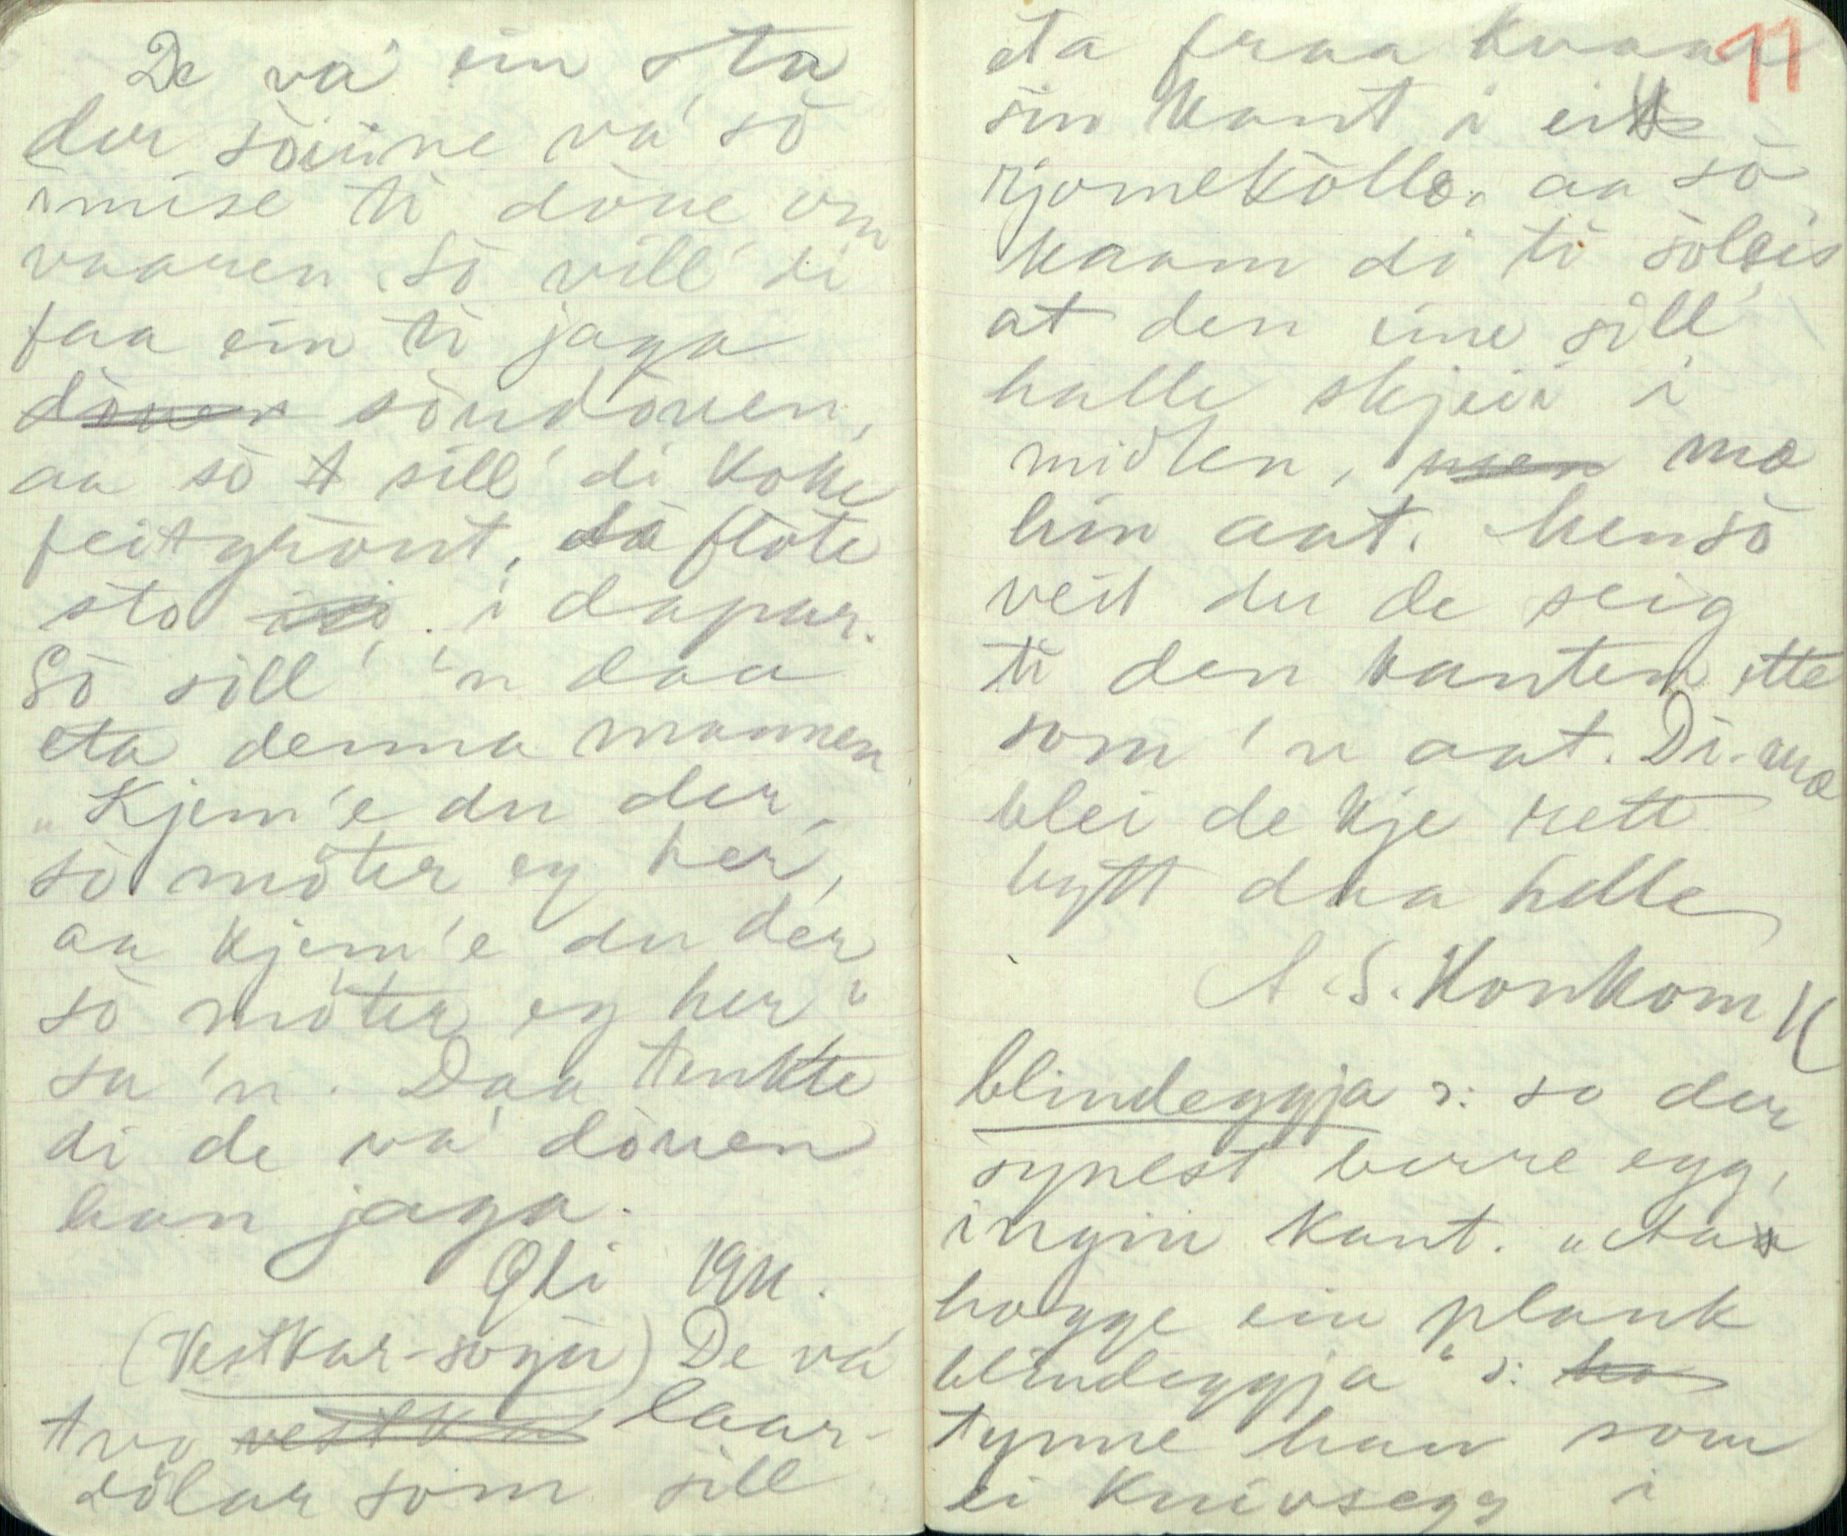 De va' ein sta
der söiine va' sö
ömise ti döue om
vaaren. Sö vill' di
faa ein ti jaga
döuen söudöuen,
aa sö t sill' di koke
feitgröut, dö flöte
sto i dapar.
Sö sill' 'n daa
eta denna mannen
"Kjem'e du der,
sö möter eg her,
aa kjem'e du der
sö möter eg her"
sa 'n. Daa tenkte
di de va' döuen
han jaga.
Oli 1911.
(Vestkar-sogu) De va'
tvo vestk laar-
dölar som sill
11
eta fraa kvaar
sin kant i eitt
rjomekolle, aa sö
kaam di ti söleis
at den eine sill'
halle skjeii i
midten, men mæ
hin aat. Men sö
veit du de seig
ti den kanten ette
som 'n aat. Di-mæ
blei de kje rett
bytt daa helle
A. S. Konkom K
blindeggja ɔ: so der
synest berre egg,
ingin kant. "Aa
hogge ein plank
blindeggja" ɔ: ho
tynne han som
ei knivsegg i